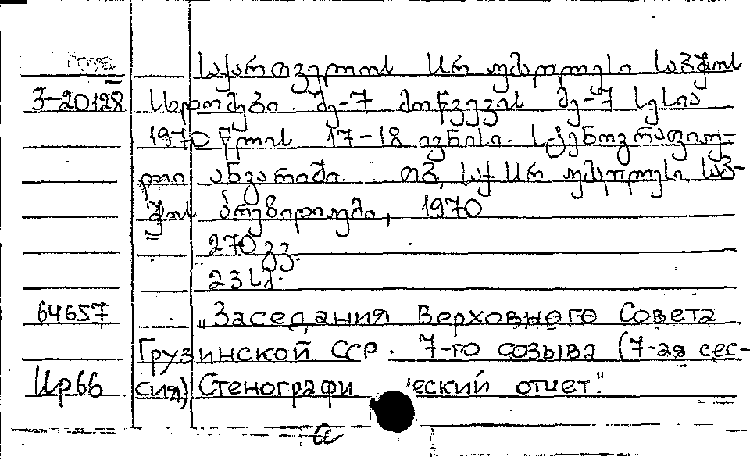 საქართველოს სსრ უმაღლესი საბჭოს
3-20128 სხდომები. მე-7 მოწვევის მე-7 სესია
1970 წლის 17-18 ივნისი. სტენოგრაფიუ-
ლი ანგარიში. თბ, საქ.სსრ უმაღლესი საბ-
ჭოს პრეზიდიუმი, 1970
270 გვ.
23 სმ.
64657 „Заседания Верховного Совета
Грузинской ССР. 7-го созыва (7-ая сес-
сия) Стенографи еский отчет."